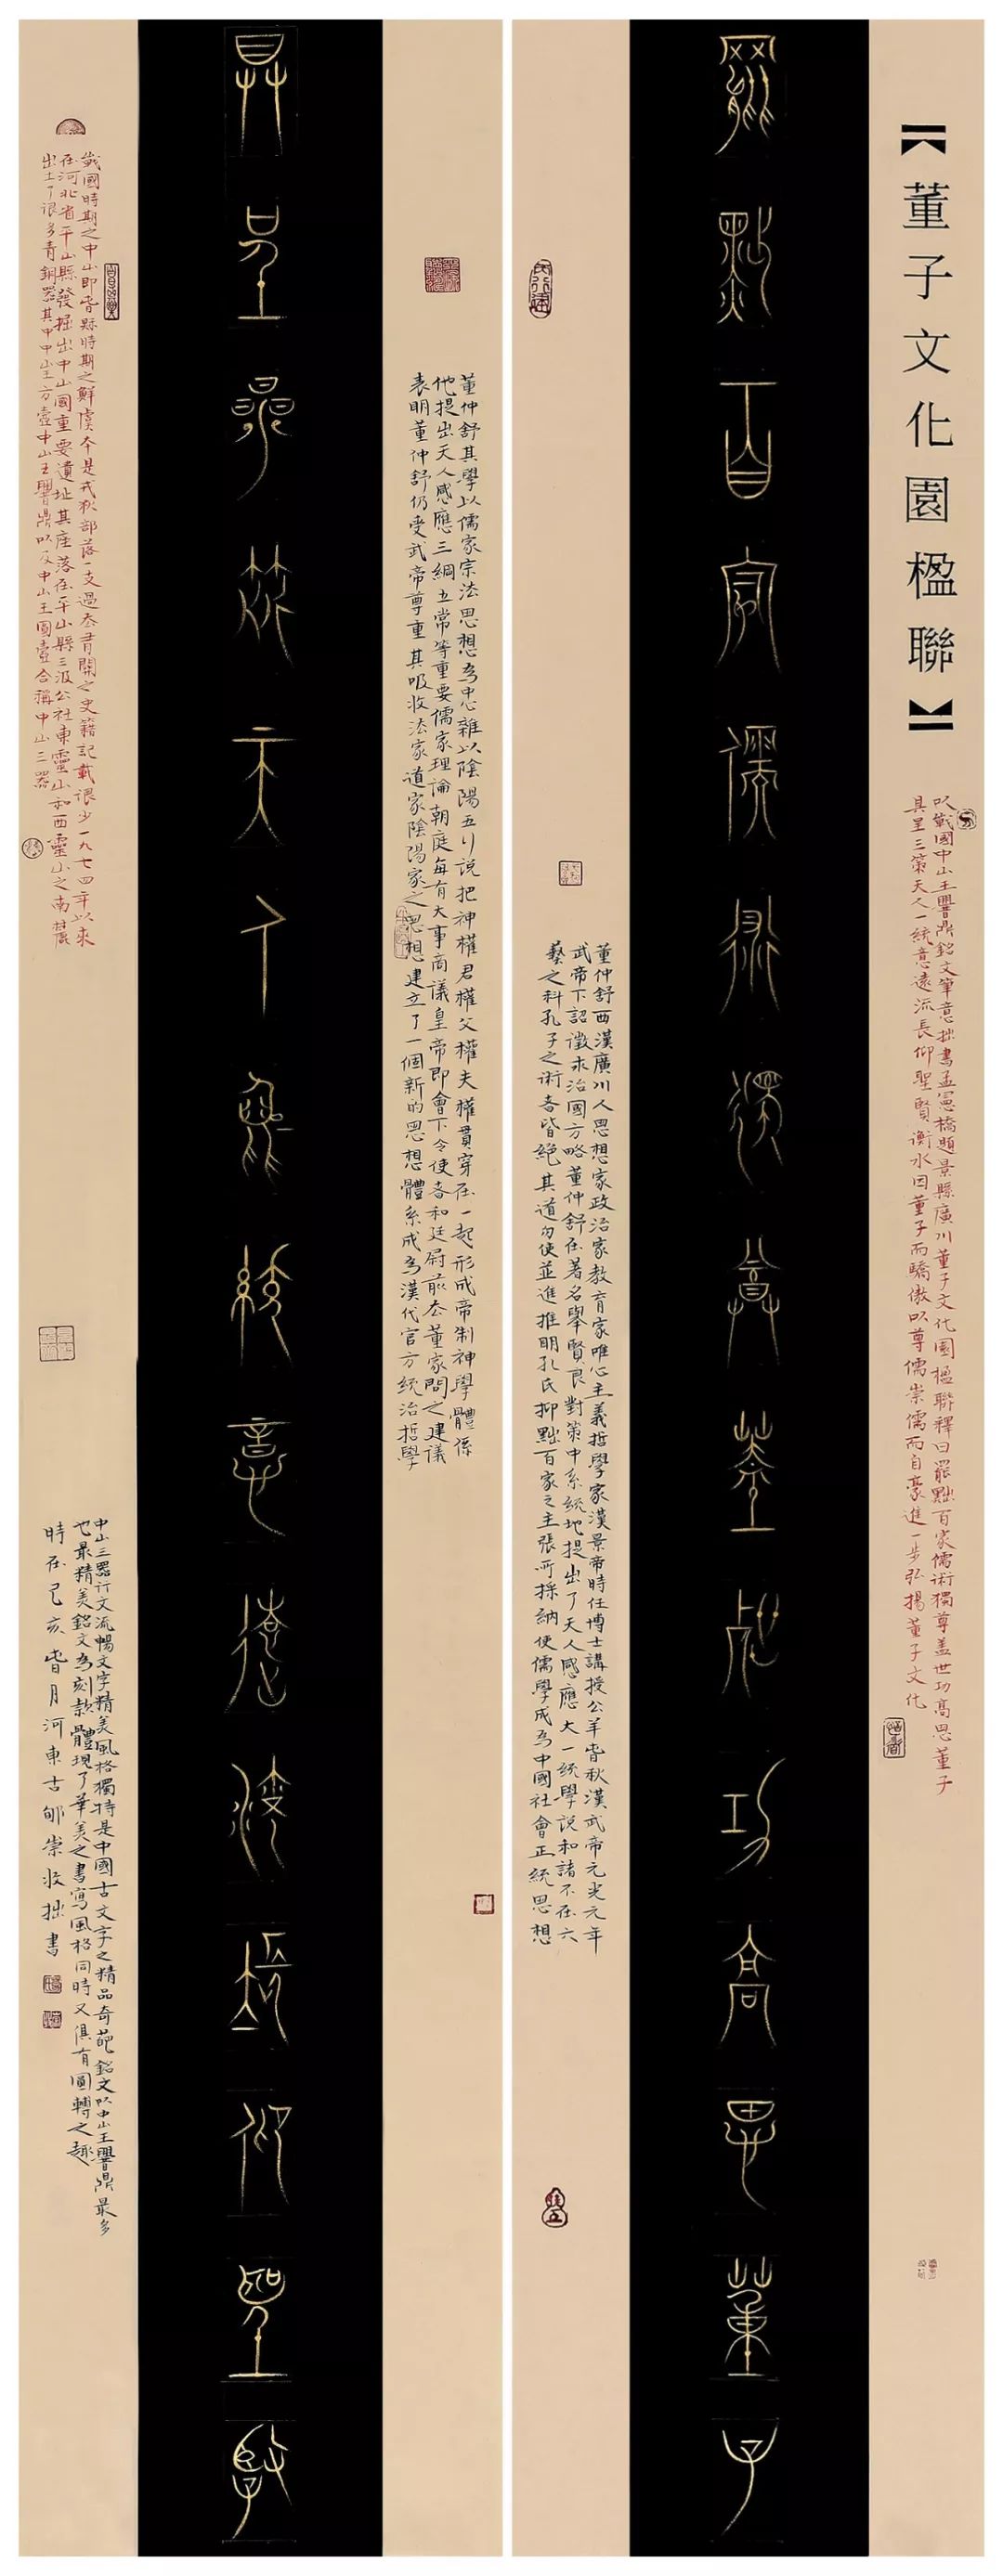 【董子文化園楹聯】
以戰國中山王𰯼鼎銘文筆意拙書孟憲橋題景縣廣川董子文化園楹聯釋曰罷黜百家儒術獨尊蓋世功高思董子
具呈三策天人一統意遠流長仰聖賢衡水因董子而驕傲以尊儒崇儒而自豪進一步弘揚董子文化
罷黜百家儒術獨尊蓋世功高思董子
董仲舒西漢廣川人思想家政治家教育家唯心主義哲學家漢景帝時任博士講授公羊春秋漢武帝元光元年
武帝下詔徵求治國方略董仲舒在著名舉賢良對策中系統地提出了天人感應大一統學说和諸不在六
藝之科孔子之術者皆絕其道勿使並進推明孔氏抑黜百家之主張所採納使儒學成為中國社會正統思想
董仲舒其學以儒家宗法思想為中心雜以陰陽五行说把神權君權父權夫權貫穿在一起形成帝制神學體係
他提出天人感應三綱五常等重要儒家理論朝庭每有大事商議皇帝即會下令使者和廷尉前去董家問之建議
表明董仲舒仍受武帝尊重其吸收法家道家陰陽家之思想建立了一個新的思想體系成為漢代官方統治哲學
具呈三策天人一統意遠流長仰聖賢
戰國時期之中山即春秋時期之鮮虞本是戎狄部落一支過去有關之史籍記載很少一九七四年以來
在河北省平山縣發掘出中山國重要遺址其座落在平山縣三汲公社東靈山和西靈山之南麓
出土了很多青銅器其中中山王方壺中山王𰯼鼎以及中山王圓壺合稱中山三器
中山三器行文流暢文字精美風格獨特是中國古文字之精品奇葩銘文以中山王𰯼鼎最多
也最精美銘文為刻款體現了華美之書寫風格同時又俱有圓轉之趣
時在己亥春月河東古郇崇收拙書